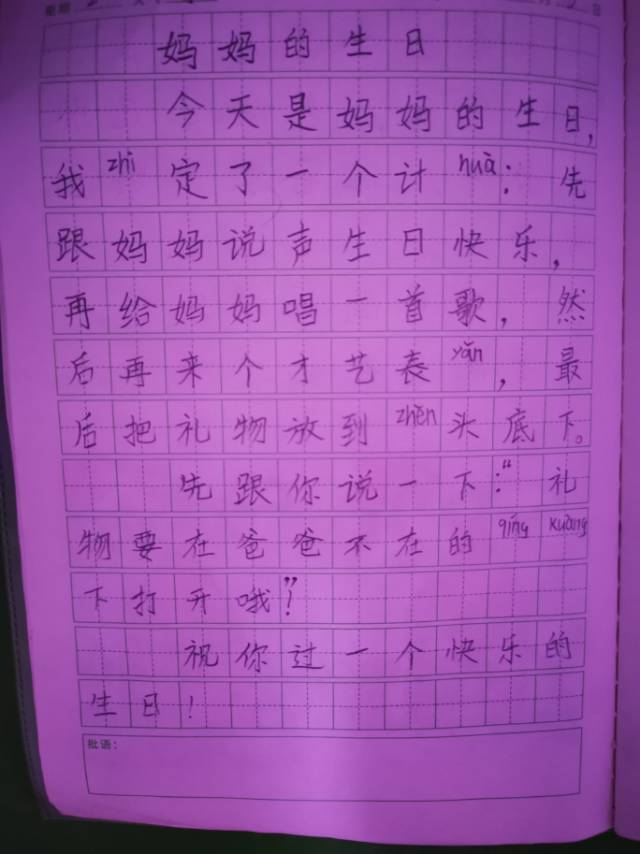 妈妈的生日
今天是妈妈的生日,
我zhì定了一个计huà:先
跟妈妈说声生日快乐,
再给妈妈唱一首歌,然
后再来个才艺表yǎn,最
后把礼物放到zhěn头底下。
先跟你说一下:“礼
物要在爸爸不在的qíng kuàng
下打开哦”!
祝你过一个快乐的
生日!
批语: